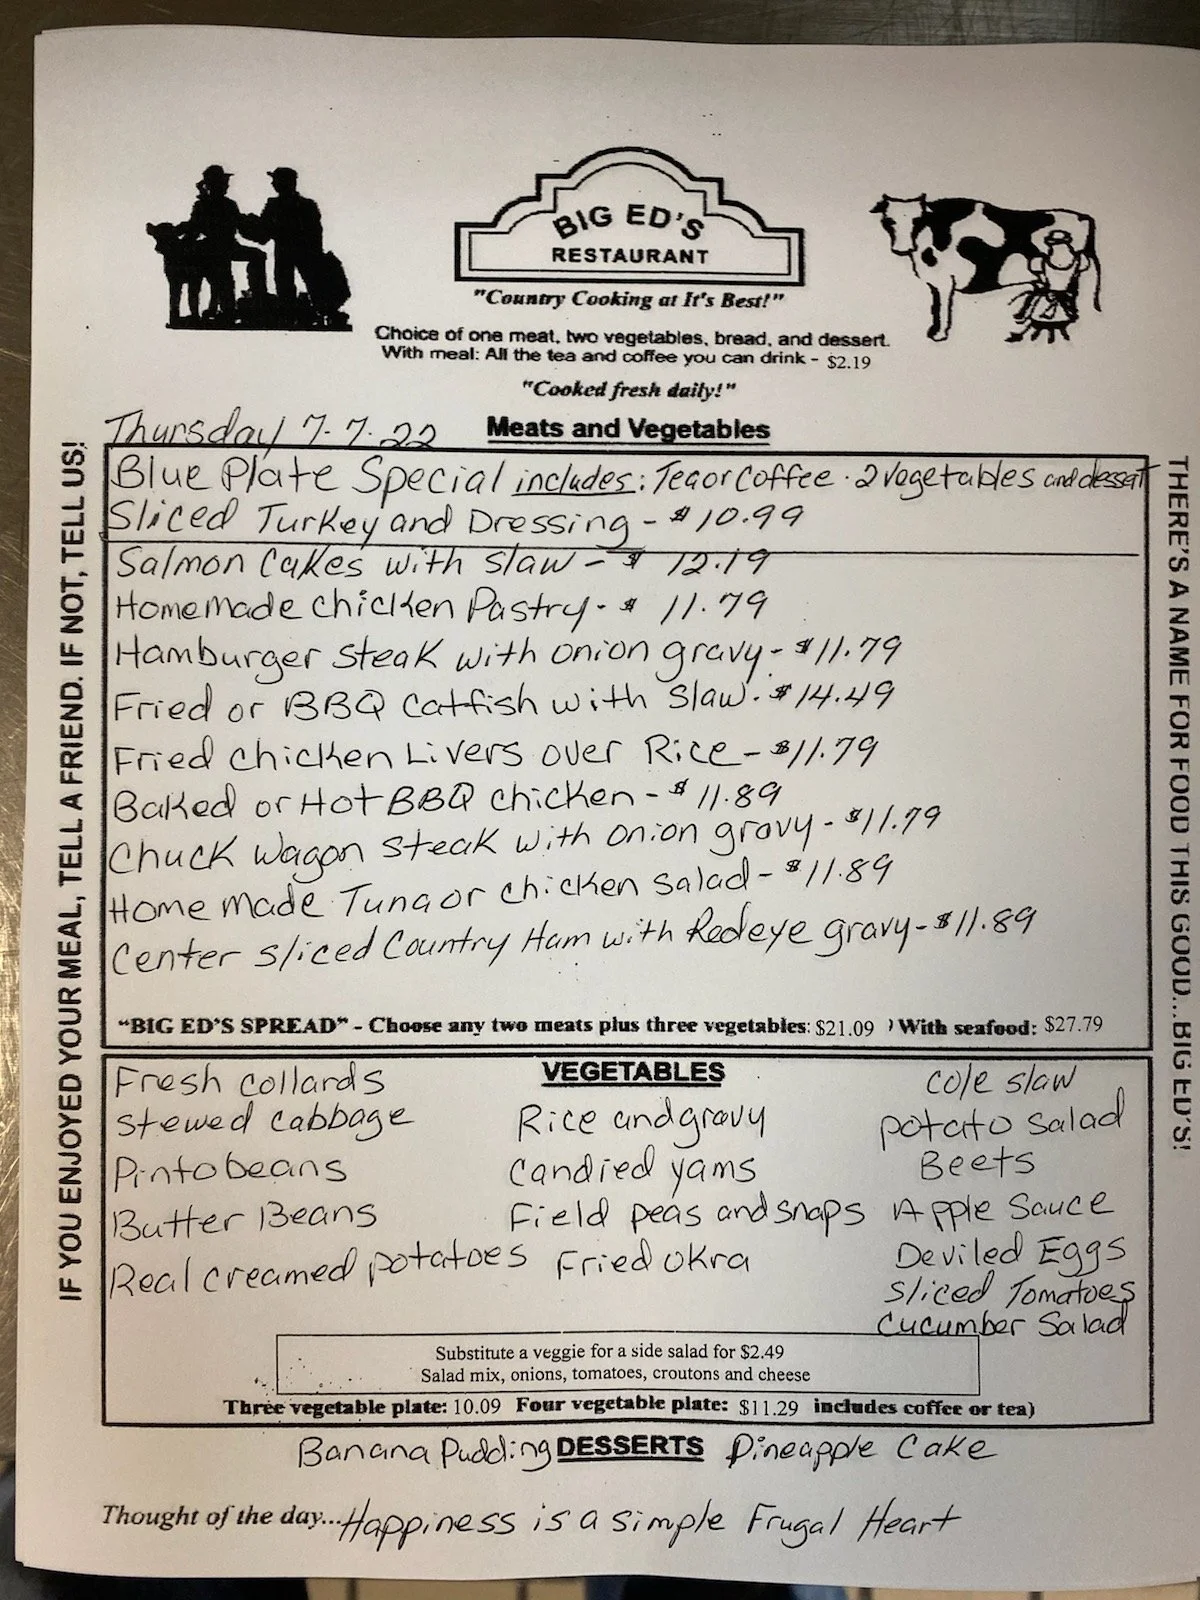 BIG ED'S
RESTAURANT
"Country Cooking at It's Best!"
Choice of one meat, two vegetables, bread, and dessert.
With meal: All the tea and coffee you can drink - $2.19
"Cooked fresh daily!"
Thursday 7-7-22
Meats and Vegetables
Blue Plate Special includes: Tea or Coffee · 2 vegetables and dessert
Sliced Turkey and Dressing - $10.99
Salmon Cakes with slaw - $ 12.19
Homemade chicken Pastry - $ 11.79
Hamburger steak with onion gravy - $11.79
Fried or BBQ Catfish with slaw - $14.49
Fried chicken Livers over Rice - $11.79
Baked or Hot BBQ chicken - $11.89
Chuck wagon steak with onion gravy - $11.79
Home made Tuna or chicken salad - $11.89
Center sliced Country Ham with Redeye gravy - $11.89
"BIG ED'S SPREAD" - Choose any two meats plus three vegetables: $21.09 ) With seafood: $27.79
VEGETABLES
Fresh collards
Stewed cabbage
Pinto beans
Butter Beans
Real creamed potatoes
Rice and gravy
Candied yams
Field peas and snaps
Fried okra
Cole slaw
Potato salad
Beets
Apple Sauce
Deviled Eggs
Sliced Tomatoes
Cucumber Salad
Substitute a veggie for a side salad for $2.49
Salad mix, onions, tomatoes, croutons and cheese
Three vegetable plate: 10.09 Four vegetable plate: $11.29 includes coffee or tea)
Banana Pudding DESSERTS Pineapple Cake
Thought of the day... Happiness is a simple Frugal Heart
IF YOU ENJOYED YOUR MEAL, TELL A FRIEND. IF NOT, TELL US!
THERE'S A NAME FOR FOOD THIS GOOD... BIG ED'S!